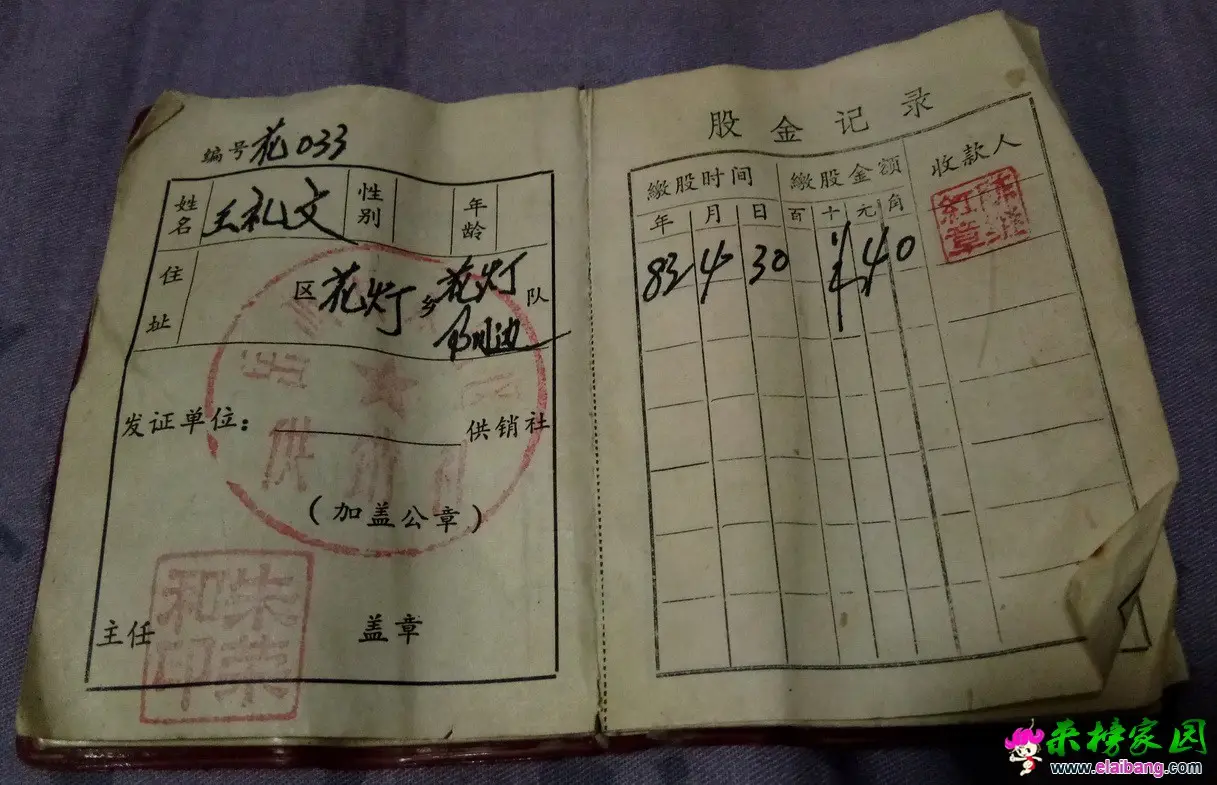 编号花033
姓名 王礼文 性别 年龄
住址 区花灯乡花灯队
发证单位： 供销社
供销社
（加盖公章）
主任 盖章
朱荣和印
股金记录
缴股时间 缴股金额 收款人
年 月 日 百 十 元 角
83 4 30 4 0
红章
来榜家园
www.elaibang.com